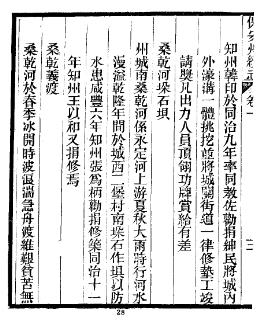 知州韓印於同治九年率同教佐勸捐紳民將城內
外濠溝一體挑挖並將城關街道一律修墊工竣
請獎凡出力人員頂領功牌賞給有差
桑乾河垛石垻
州城南桑乾河係永定河上游夏秋大雨時行河水
漫溢乾隆年間於城西二堡村南垛石作垻以防
水患咸豐六年知州張嵩炳勸捐修築同治十一
年知州王以和又捐修焉
桑乾義渡
桑乾河於春季冰開時波浪湍急舟渡維艱貧苦無
28